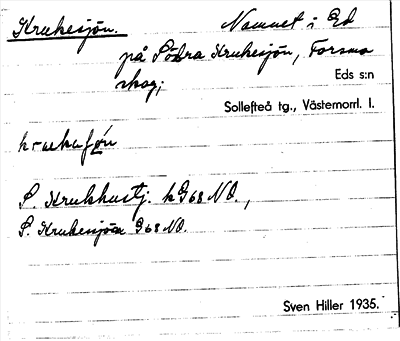 Krukesjön. Namnet i Ed
på Södra Krukesjön, Forsmo
skog;
Eds s:n
Sollefteå tg., Västernorrl. l.
S. Krukhustj. k G68 NO.,
S. Krukesjön G68 NO.
Sven Hiller 1935.